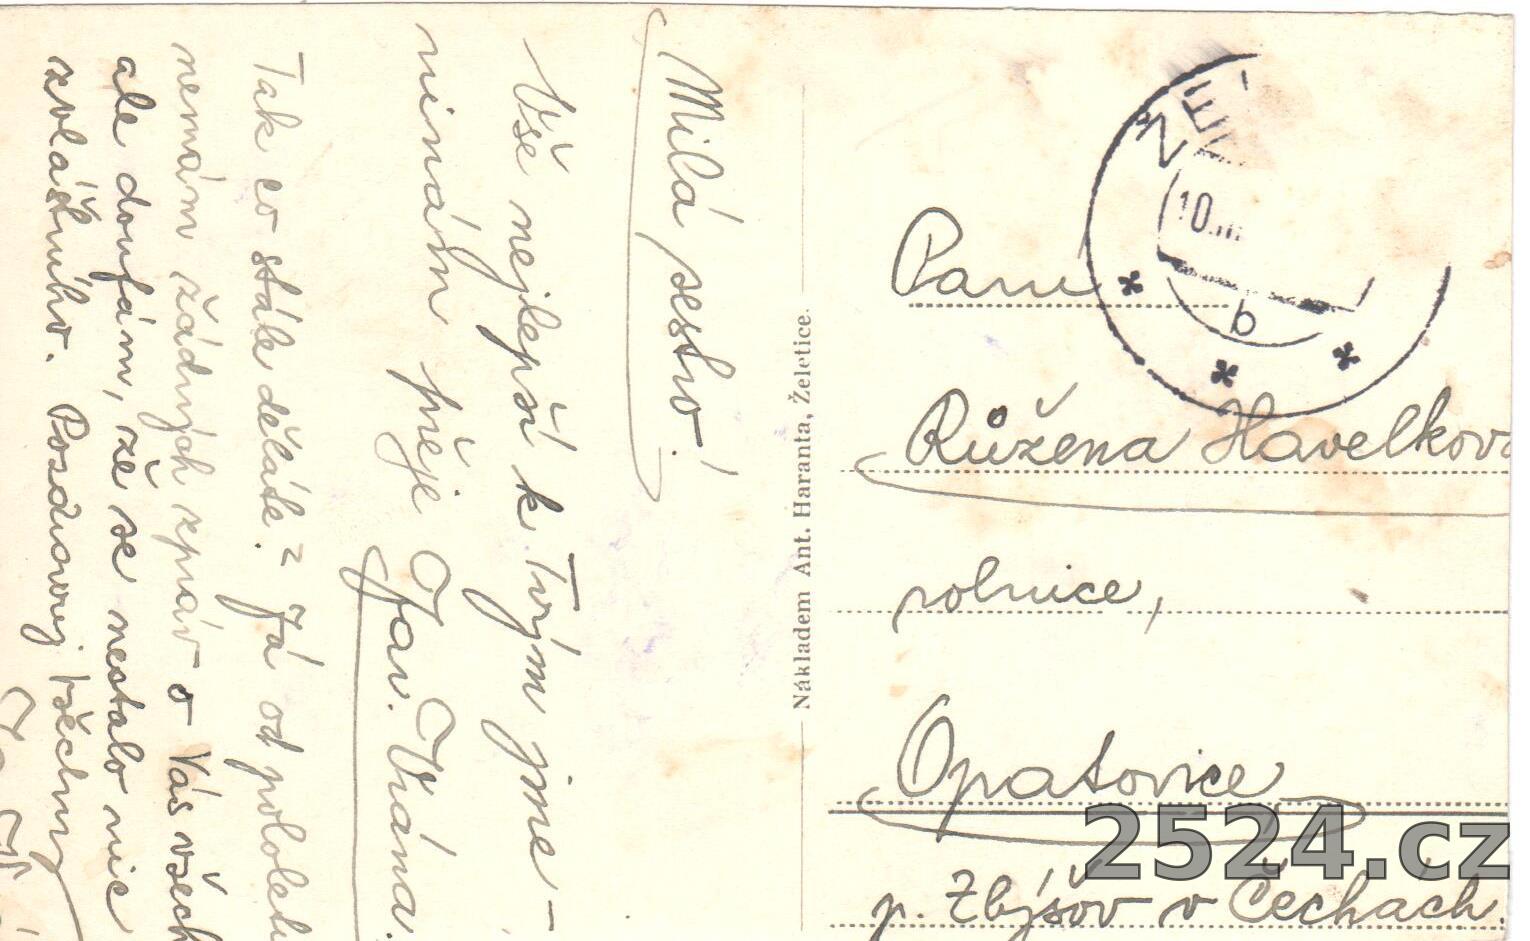 Milá sestro!
Vše nejlepší k Tvým jme-
ninám přeje
Jar. Vrána.
Tak co stále děláte? Já od pololetí
nemám žádných zpráv o Vás všech
ale doufám, že se nestalo nic
zvláštního. Pozdravuj všechny
Nákladem Ant. Haranta, Želetice.
ŽE
10.
b
Paní
Růžena Havelková
rolnice,
Opatovice
p. Zbýšov v Čechách.
2524.cz